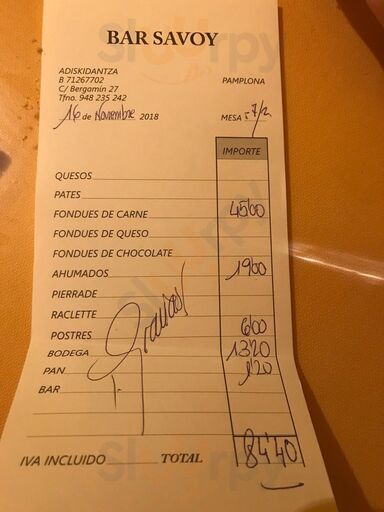 BAR SAVOY
ADISKIDANTZA
B 71267702
C/ Bergamín 27
Tfno. 948 235 242
PAMPLONA
16 de Noviembre 2018
MESA
IMPORTE
QUESOS
PATES
FONDUES DE CARNE 45'00
FONDUES DE QUESO
FONDUES DE CHOCOLATE
AHUMADOS 19'00
PIERRADE
RACLETTE
POSTRES 6'00
BODEGA 13'20
PAN 1'20
BAR
Gracias
IVA INCLUIDO TOTAL 84'40